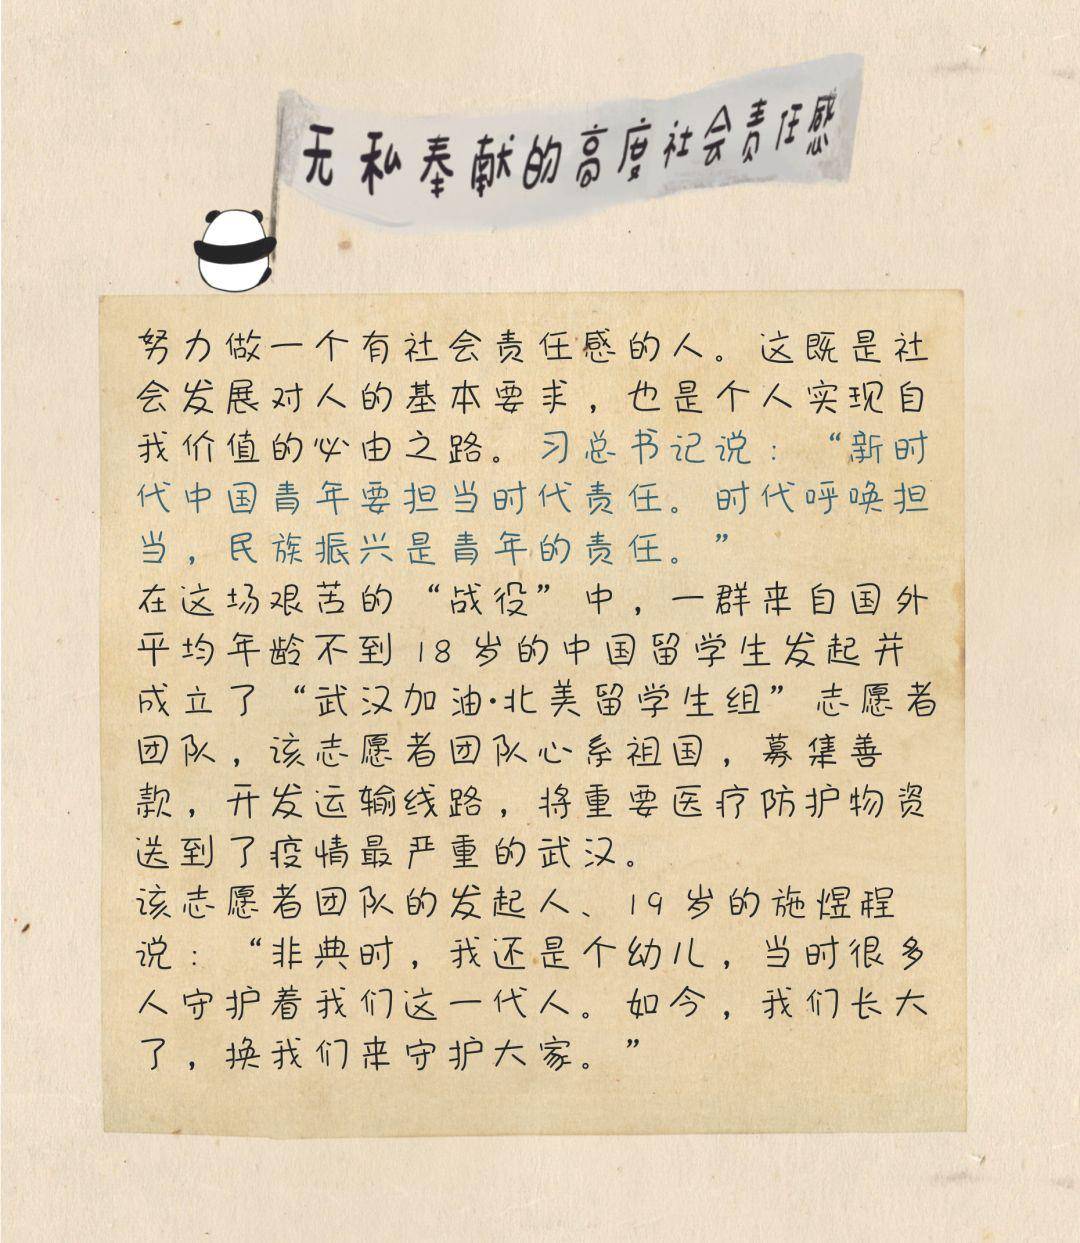 无私奉献的高度社会责任感
努力做一个有社会责任感的人。这既是社
会发展对人的基本要求，也是个人实现自
我价值的必由之路。习总书记说：“新时
代中国青年要担当时代责任。时代呼唤担
当，民族振兴是青年的责任。”
在这场艰苦的“战役”中，一群来自国外
平均年龄不到18岁的中国留学生发起并
成立了“武汉加油·北美留学生组”志愿者
团队，该志愿者团队心系祖国，募集善
款，开发运输线路，将重要医疗防护物资
送到了疫情最严重的武汉。
该志愿者团队的发起人、19岁的施煜程
说：“非典时，我还是个幼儿，当时很多
人守护着我们这一代人。如今，我们长大
了，换我们来守护大家。”